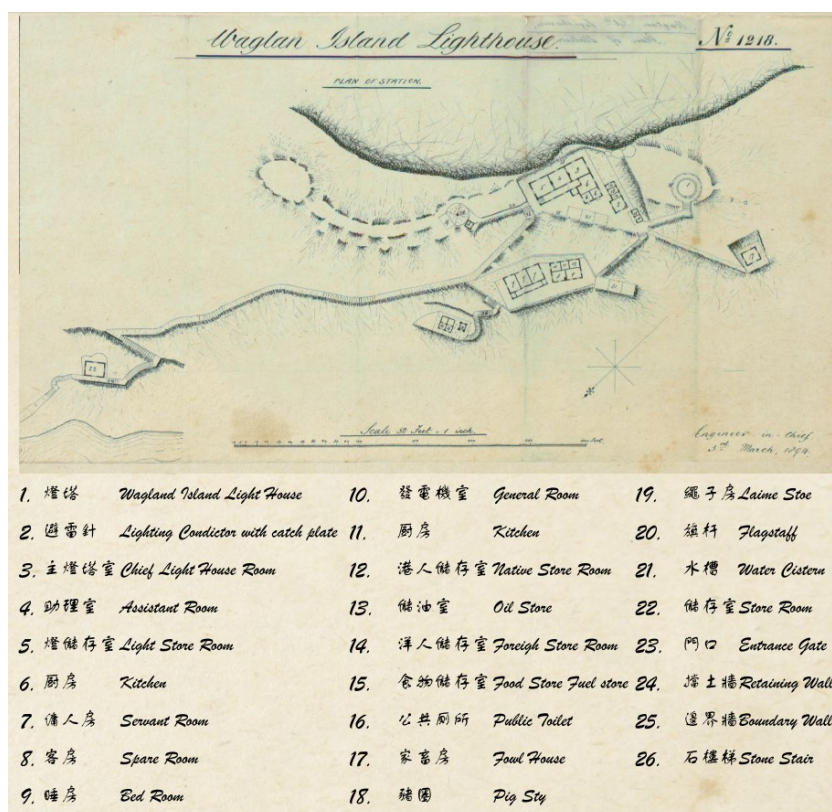 Waglan Island Lighthouse.
No 1218.
PLAN OF STATION.
Scale 50 Feet = 1 inch.
Engineer in Chief
3rd March, 1894.
1. 燈塔 Wagland Island Light House
2. 避雷針 Lighting Condictor with catch plate
3. 主燈塔室 Chief Light House Room
4. 助理室 Assistant Room
5. 燈儲存室 Light Store Room
6. 厨房 Kitchen
7. 傭人房 Servant Room
8. 客房 Spare Room
9. 睡房 Bed Room
10. 發電機室 General Room
11. 厨房 Kitchen
12. 港人儲存室 Native Store Room
13. 儲油室 Oil Store
14. 洋人儲存室 Foreigh Store Room
15. 食物儲存室 Food Store Fuel store
16. 公共厠所 Public Toilet
17. 家畜房 Fowl House
18. 豬圈 Pig Sty
19. 繩子房 Laime Stoe
20. 旗杆 Flagstaff
21. 水槽 Water Cistern
22. 儲存室 Store Room
23. 門口 Entrance Gate
24. 擋土牆 Retaining Wall
25. 邊界牆 Boundary Wall
26. 石樓梯 Stone Stair